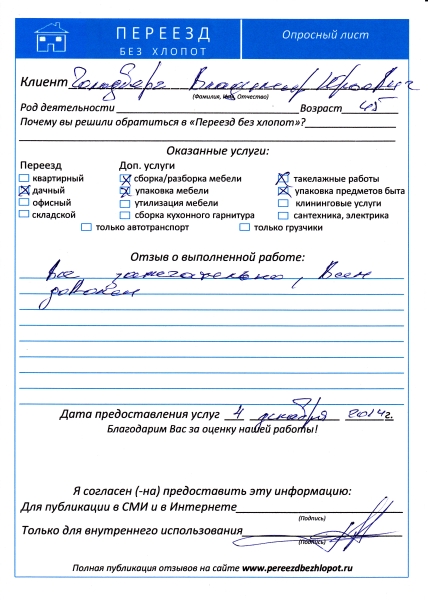 ПЕРЕЕЗД
БЕЗ ХЛОПОТ
Опросный лист
Клиент Гольдберг Владимир Юрьевич
(Фамилия, Имя, Отчество)
Род деятельности Возраст 45
Почему вы решили обратиться в «Переезд без хлопот»?
Оказанные услуги:
Переезд Доп. услуги
квартирный сборка/разборка мебели такелажные работы
дачный упаковка мебели упаковка предметов быта
офисный утилизация мебели клининговые услуги
складской сборка кухонного гарнитура сантехника, электрика
только автотранспорт только грузчики
Отзыв о выполненной работе:
Все замечательно, Всем
доволен
Дата предоставления услуг 4 декабря 2014г.
Благодарим Вас за оценку нашей работы!
Я согласен (-на) предоставить эту информацию:
Для публикации в СМИ и в Интернете
(Подпись)
Только для внутреннего использования
(Подпись)
Полная публикация отзывов на сайте www.pereezdbezhlopot.ru